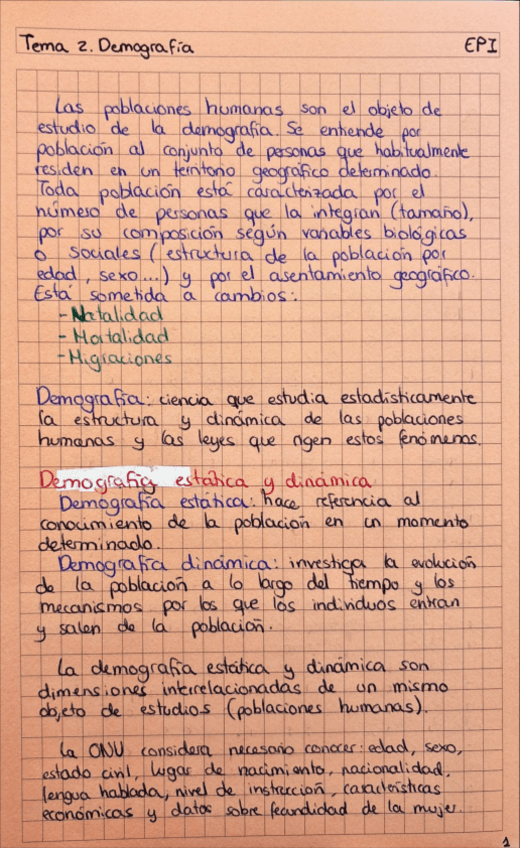 Tema 2. Demografía EPI
Las poblaciones humanas son el objeto de
estudio de la demografía. Se entiende por
población al conjunto de personas que habitualmente
residen en un territorio geográfico determinado.
Toda población está caracterizada por el
número de personas que la integran (tamaño),
por su composición según variables biológicas
o sociales (estructura de la población por
edad, sexo...) y por el asentamiento geográfico.
Está sometida a cambios:
- Natalidad
- Mortalidad
- Migraciones
Demografía: ciencia que estudia estadísticamente
la estructura y dinámica de las poblaciones
humanas y las leyes que rigen estos fenómenos.
Demografía estática y dinámica
Demografía estática: hace referencia al
conocimiento de la población en un momento
determinado.
Demografía dinámica: investiga la evolución
de la población a lo largo del tiempo y los
mecanismos por los que los individuos entran
y salen de la población.
La demografía estática y dinámica son
dimensiones interrelacionadas de un mismo
objeto de estudios (poblaciones humanas).
La ONU considera necesario conocer: edad, sexo,
estado civil, lugar de nacimiento, nacionalidad,
lengua hablada, nivel de instrucción, características
económicas y datos sobre fecundidad de la mujer.
1